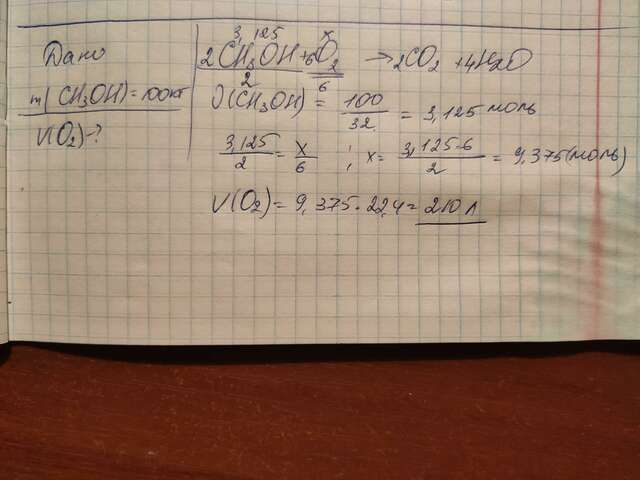 Дано
m(CH3OH)=100кг
V(O2)-?
3,125 x
2CH3OH+6O2 →2CO2 +4H2O
2 6
ν(CH3OH) = 100/32 = 3,125 моль
3,125/2 = x/6 ; x= 3,125·6/2 = 9,375(моль)
V(O2)= 9,375·22,4=210л